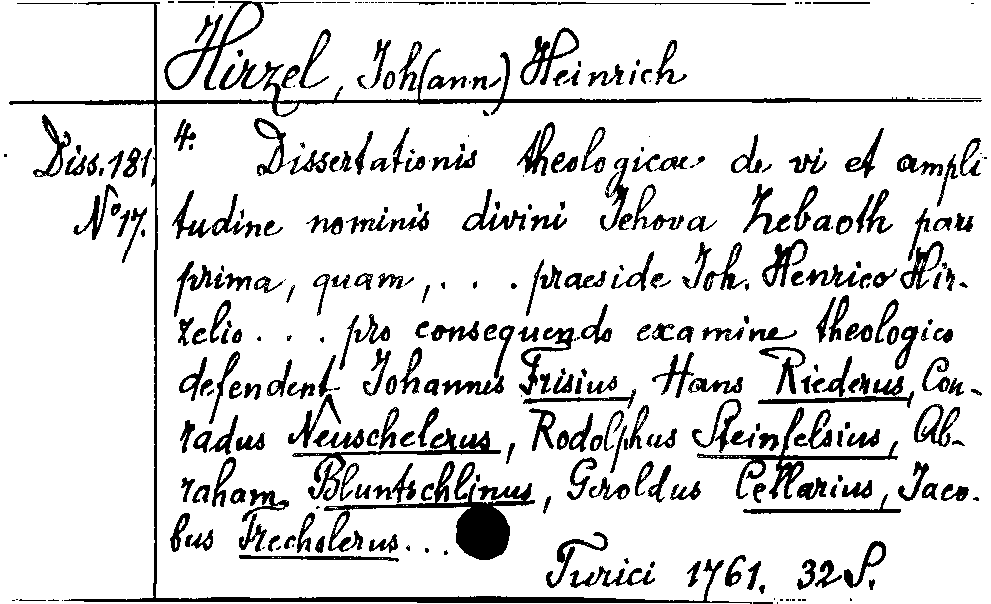 Hirzel, Joh(ann) Heinrich
Diss. 181,
No 17.
4. Dissertationis theologicae de vi et ampli
tudine nominis divini Jehova Zebaoth pars
prima, quam, . . . praeside Joh. Henrico Hir-
zelio . . . pro consequendo examine theologico
defendent Johannes Frisius, Hans Riederus, Con-
radus Neuschelerus, Rodolphus Steinfelsius, Ab-
raham Bluntschlinus, Geroldus Cellarius, Jaco-
bus Trechslerus . . .
Turici 1761. 32 S.